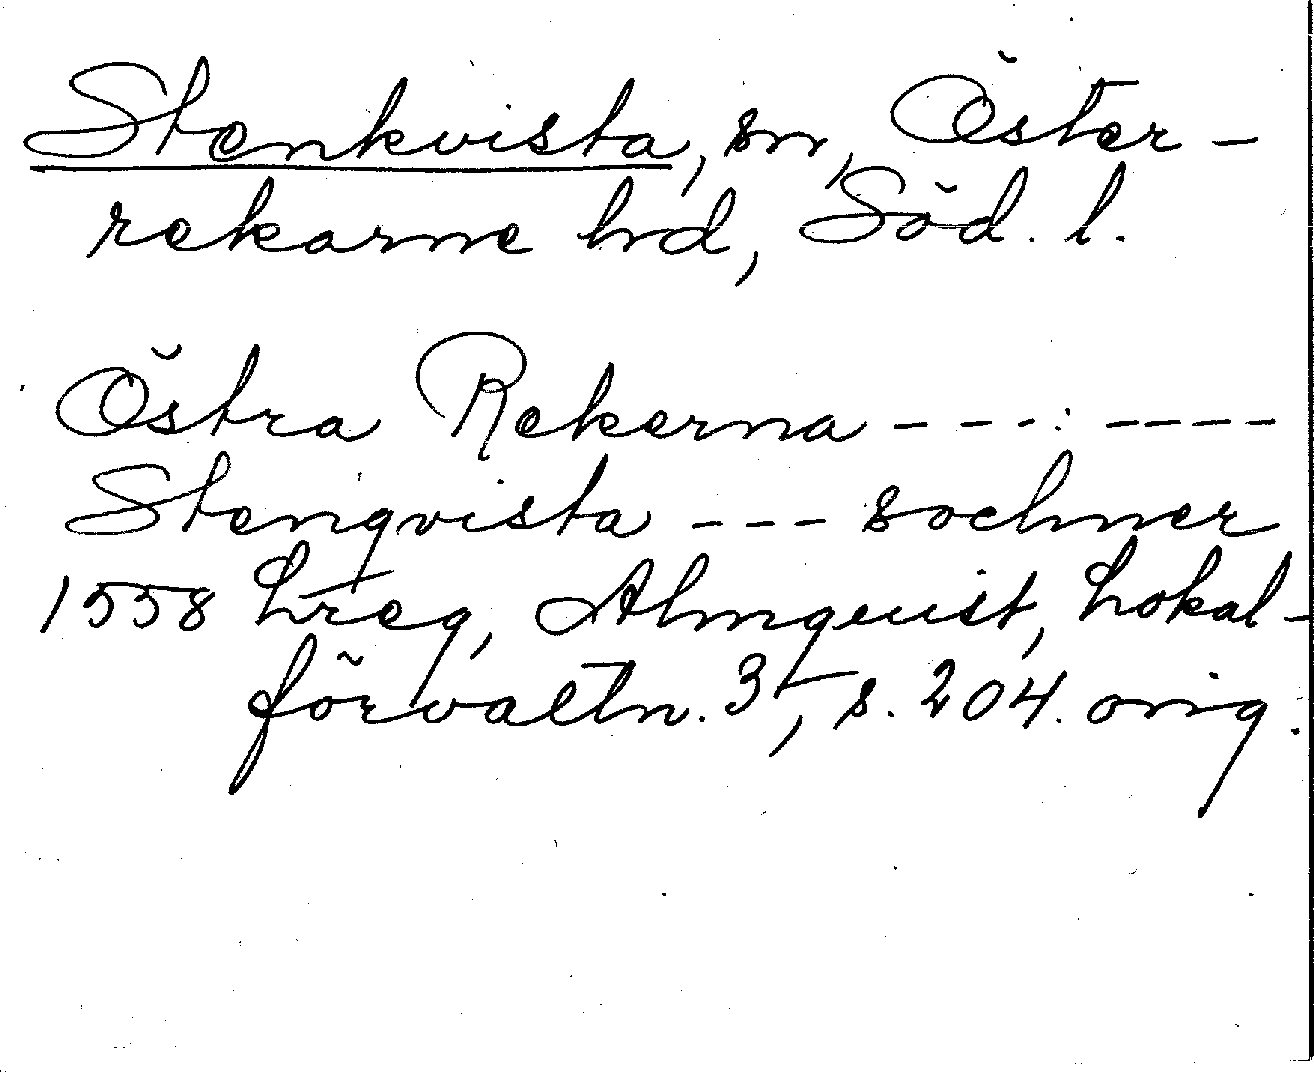 Stenkvista, sn, Öster-
rekarne hd, Söd. l.
Östra Rekerna - - - . - - - -
Stenqvista - - - sochner
1558 Lreg, Almquist, Lokal-
förvaltn. 3, s. 204. orig.